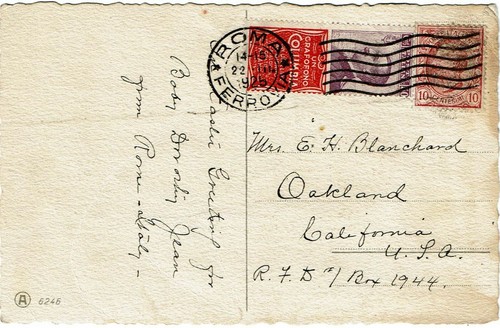 ROMA
FERROVIA
1925
UN
GRAFOFONO
COLUMBIA
10 CENTESIMI 10
Easter Greeting for
Baby Dorothy Jean
from Rome - Italy -
Mrs. E. H. Blanchard
Oakland
California
U. S. A.
R. F. D #1 Box 1944.
A 6246